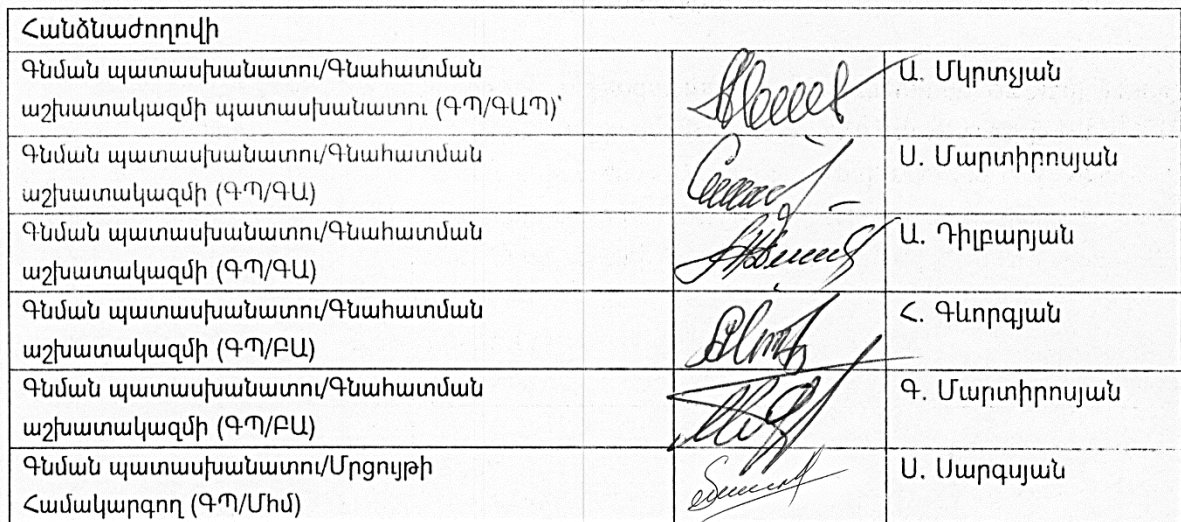 Հանձնաժողովի
Գնման պատասխանատու/Գնահատման
աշխատակազմի պատասխանատու (ԳՊ/ԳԱՊ)՝
Ա. Մկրտչյան
Գնման պատասխանատու/Գնահատման
աշխատակազմի (ԳՊ/ԳԱ)
Ս. Մարտիրոսյան
Գնման պատասխանատու/Գնահատման
աշխատակազմի (ԳՊ/ԳԱ)
Ա. Դիլբարյան
Գնման պատասխանատու/Գնահատման
աշխատակազմի (ԳՊ/ԲԱ)
Հ. Գևորգյան
Գնման պատասխանատու/Գնահատման
աշխատակազմի (ԳՊ/ԲԱ)
Գ. Մարտիրոսյան
Գնման պատասխանատու/Մրցույթի
Համակարգող (ԳՊ/Մհմ)
Ս. Սարգսյան